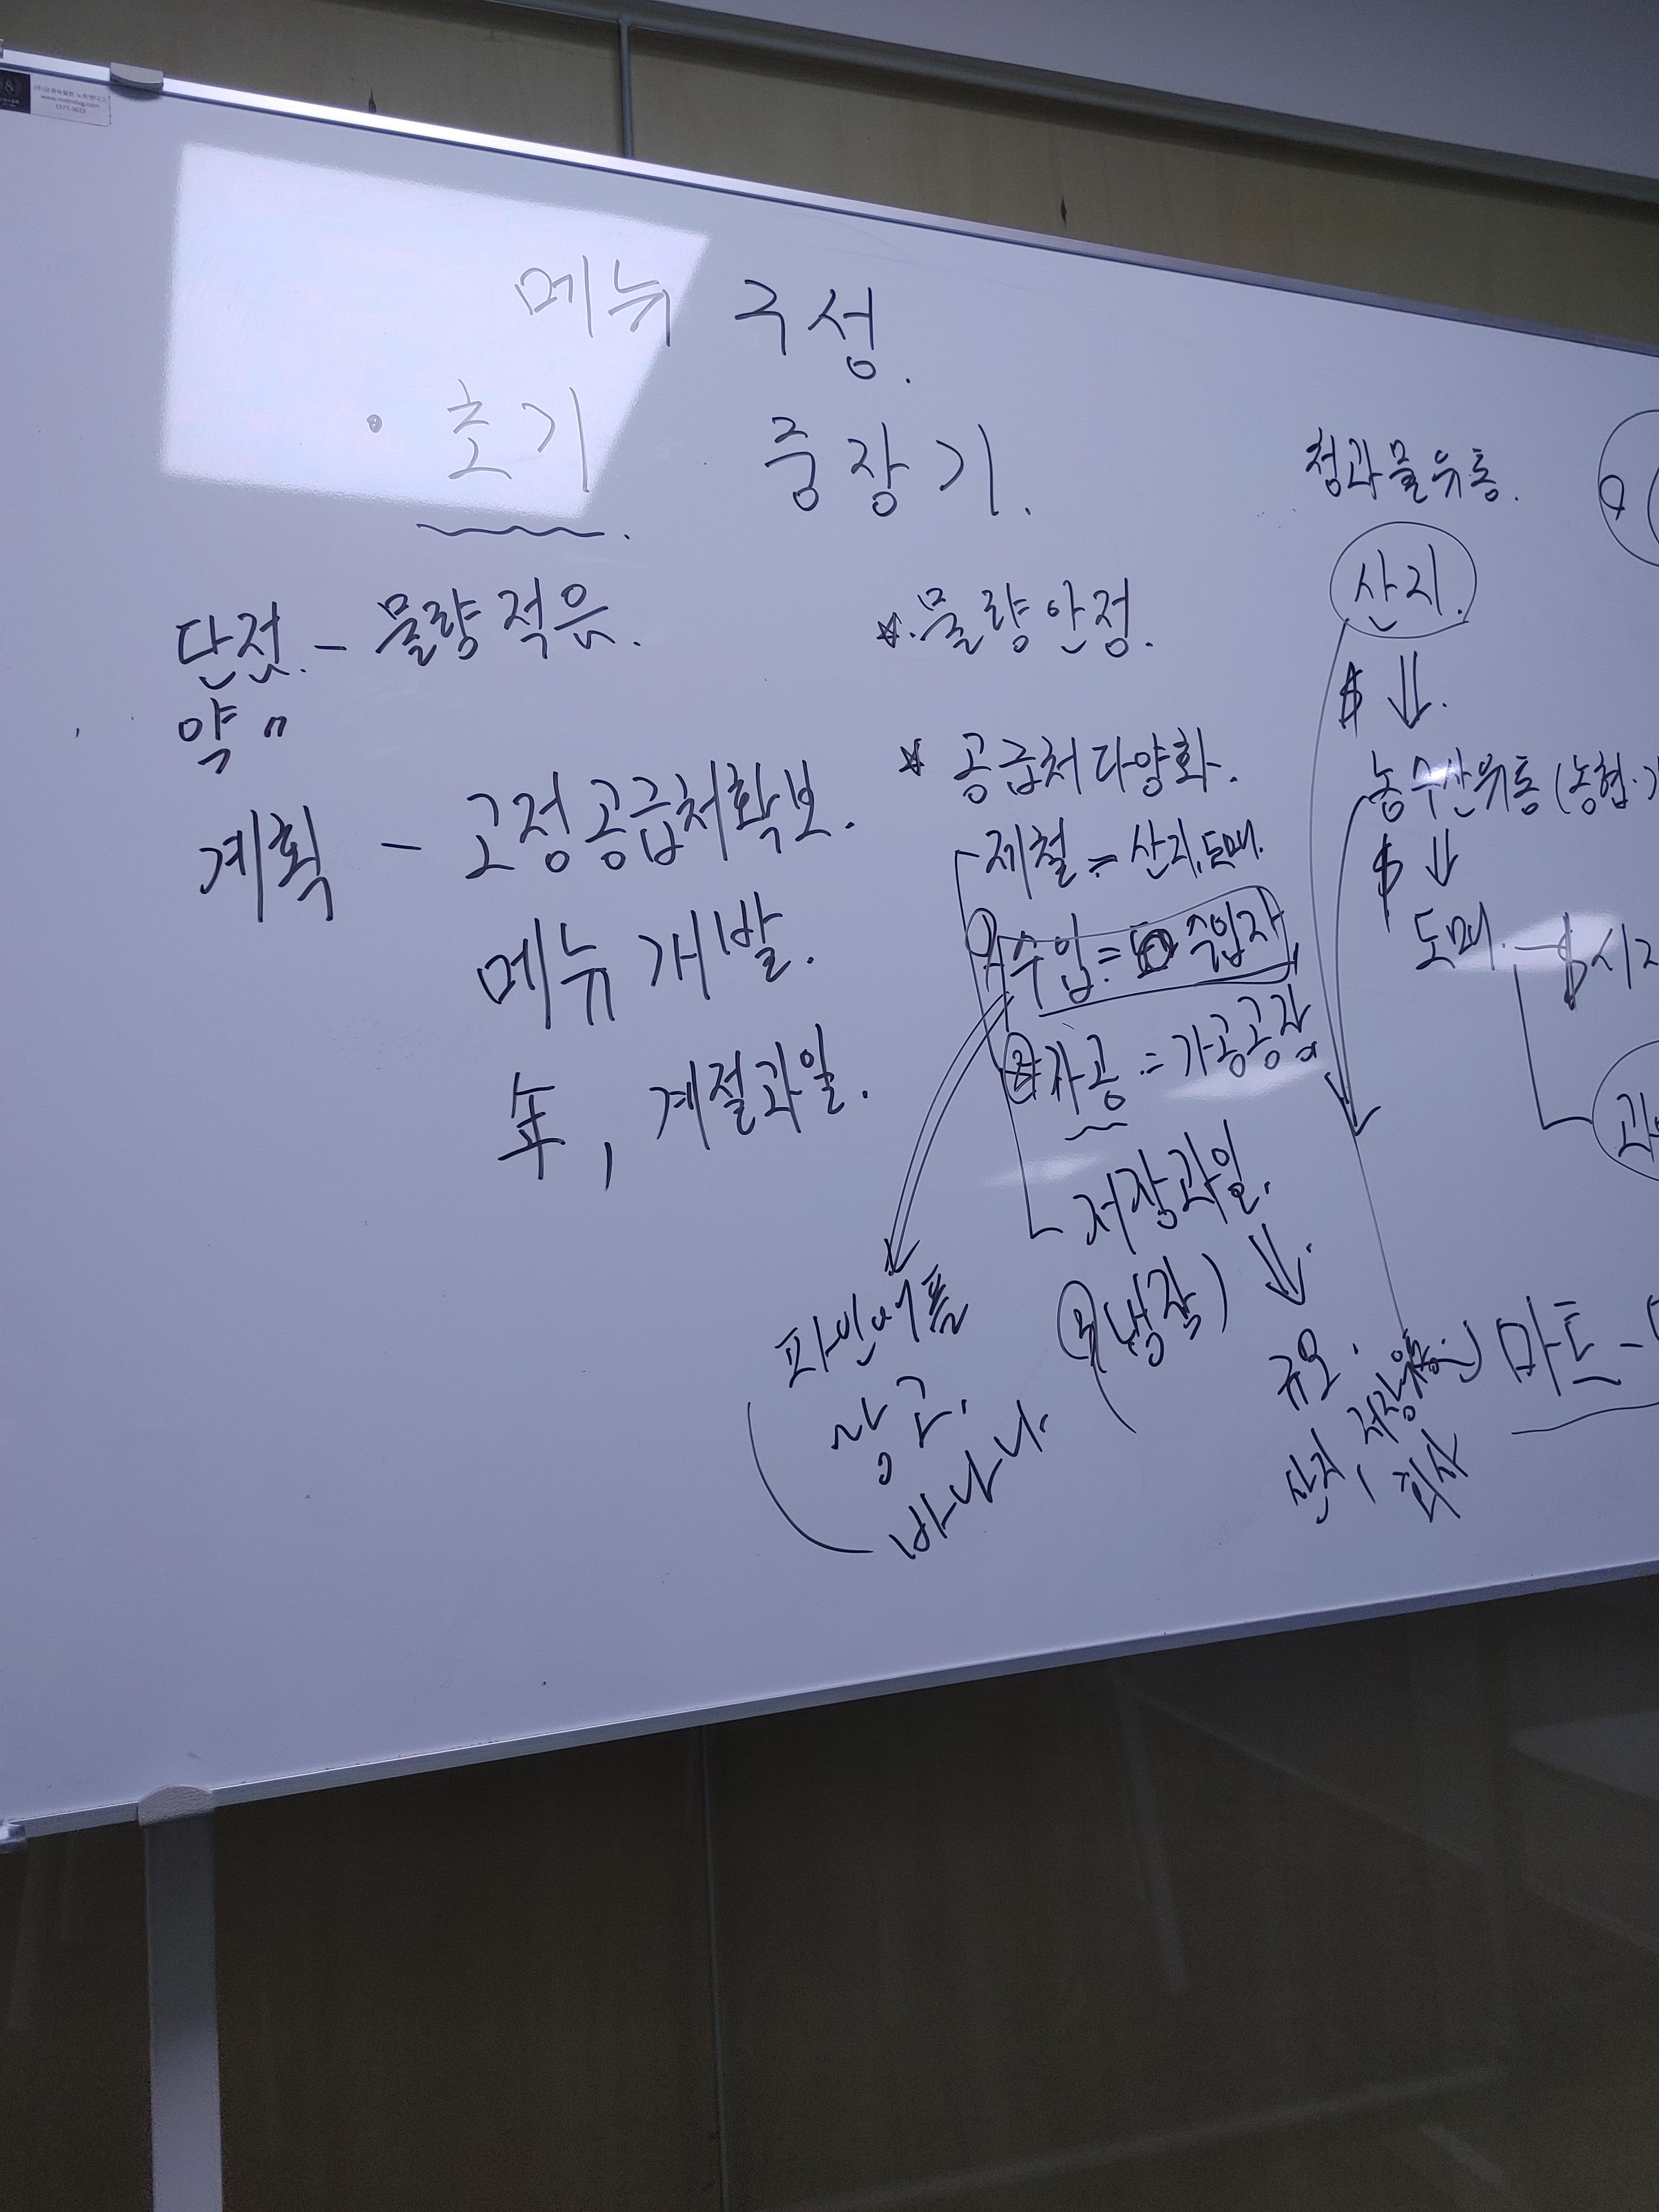 메뉴 구성.
· 초기
중장기.
단점. - 물량 적음.
약 〃
계획 - 고정공급처확보.
메뉴 개발.
年, 계절과일.
☆. 물량 안정.
☆ 공급처 다양화.
- 제철 = 산지, 도매.
① 수입 = 수입자
② 가공 = 가공공장
저장과일.
(냉장)
파인애플
망고.
바나나.
청과물유통.
산지.
$ ⇓.
농수산유통 (농협·
$ ⇓
도매. - $ 시
규모.
산지, 저장
회사
마트 -
www.
1577-3633